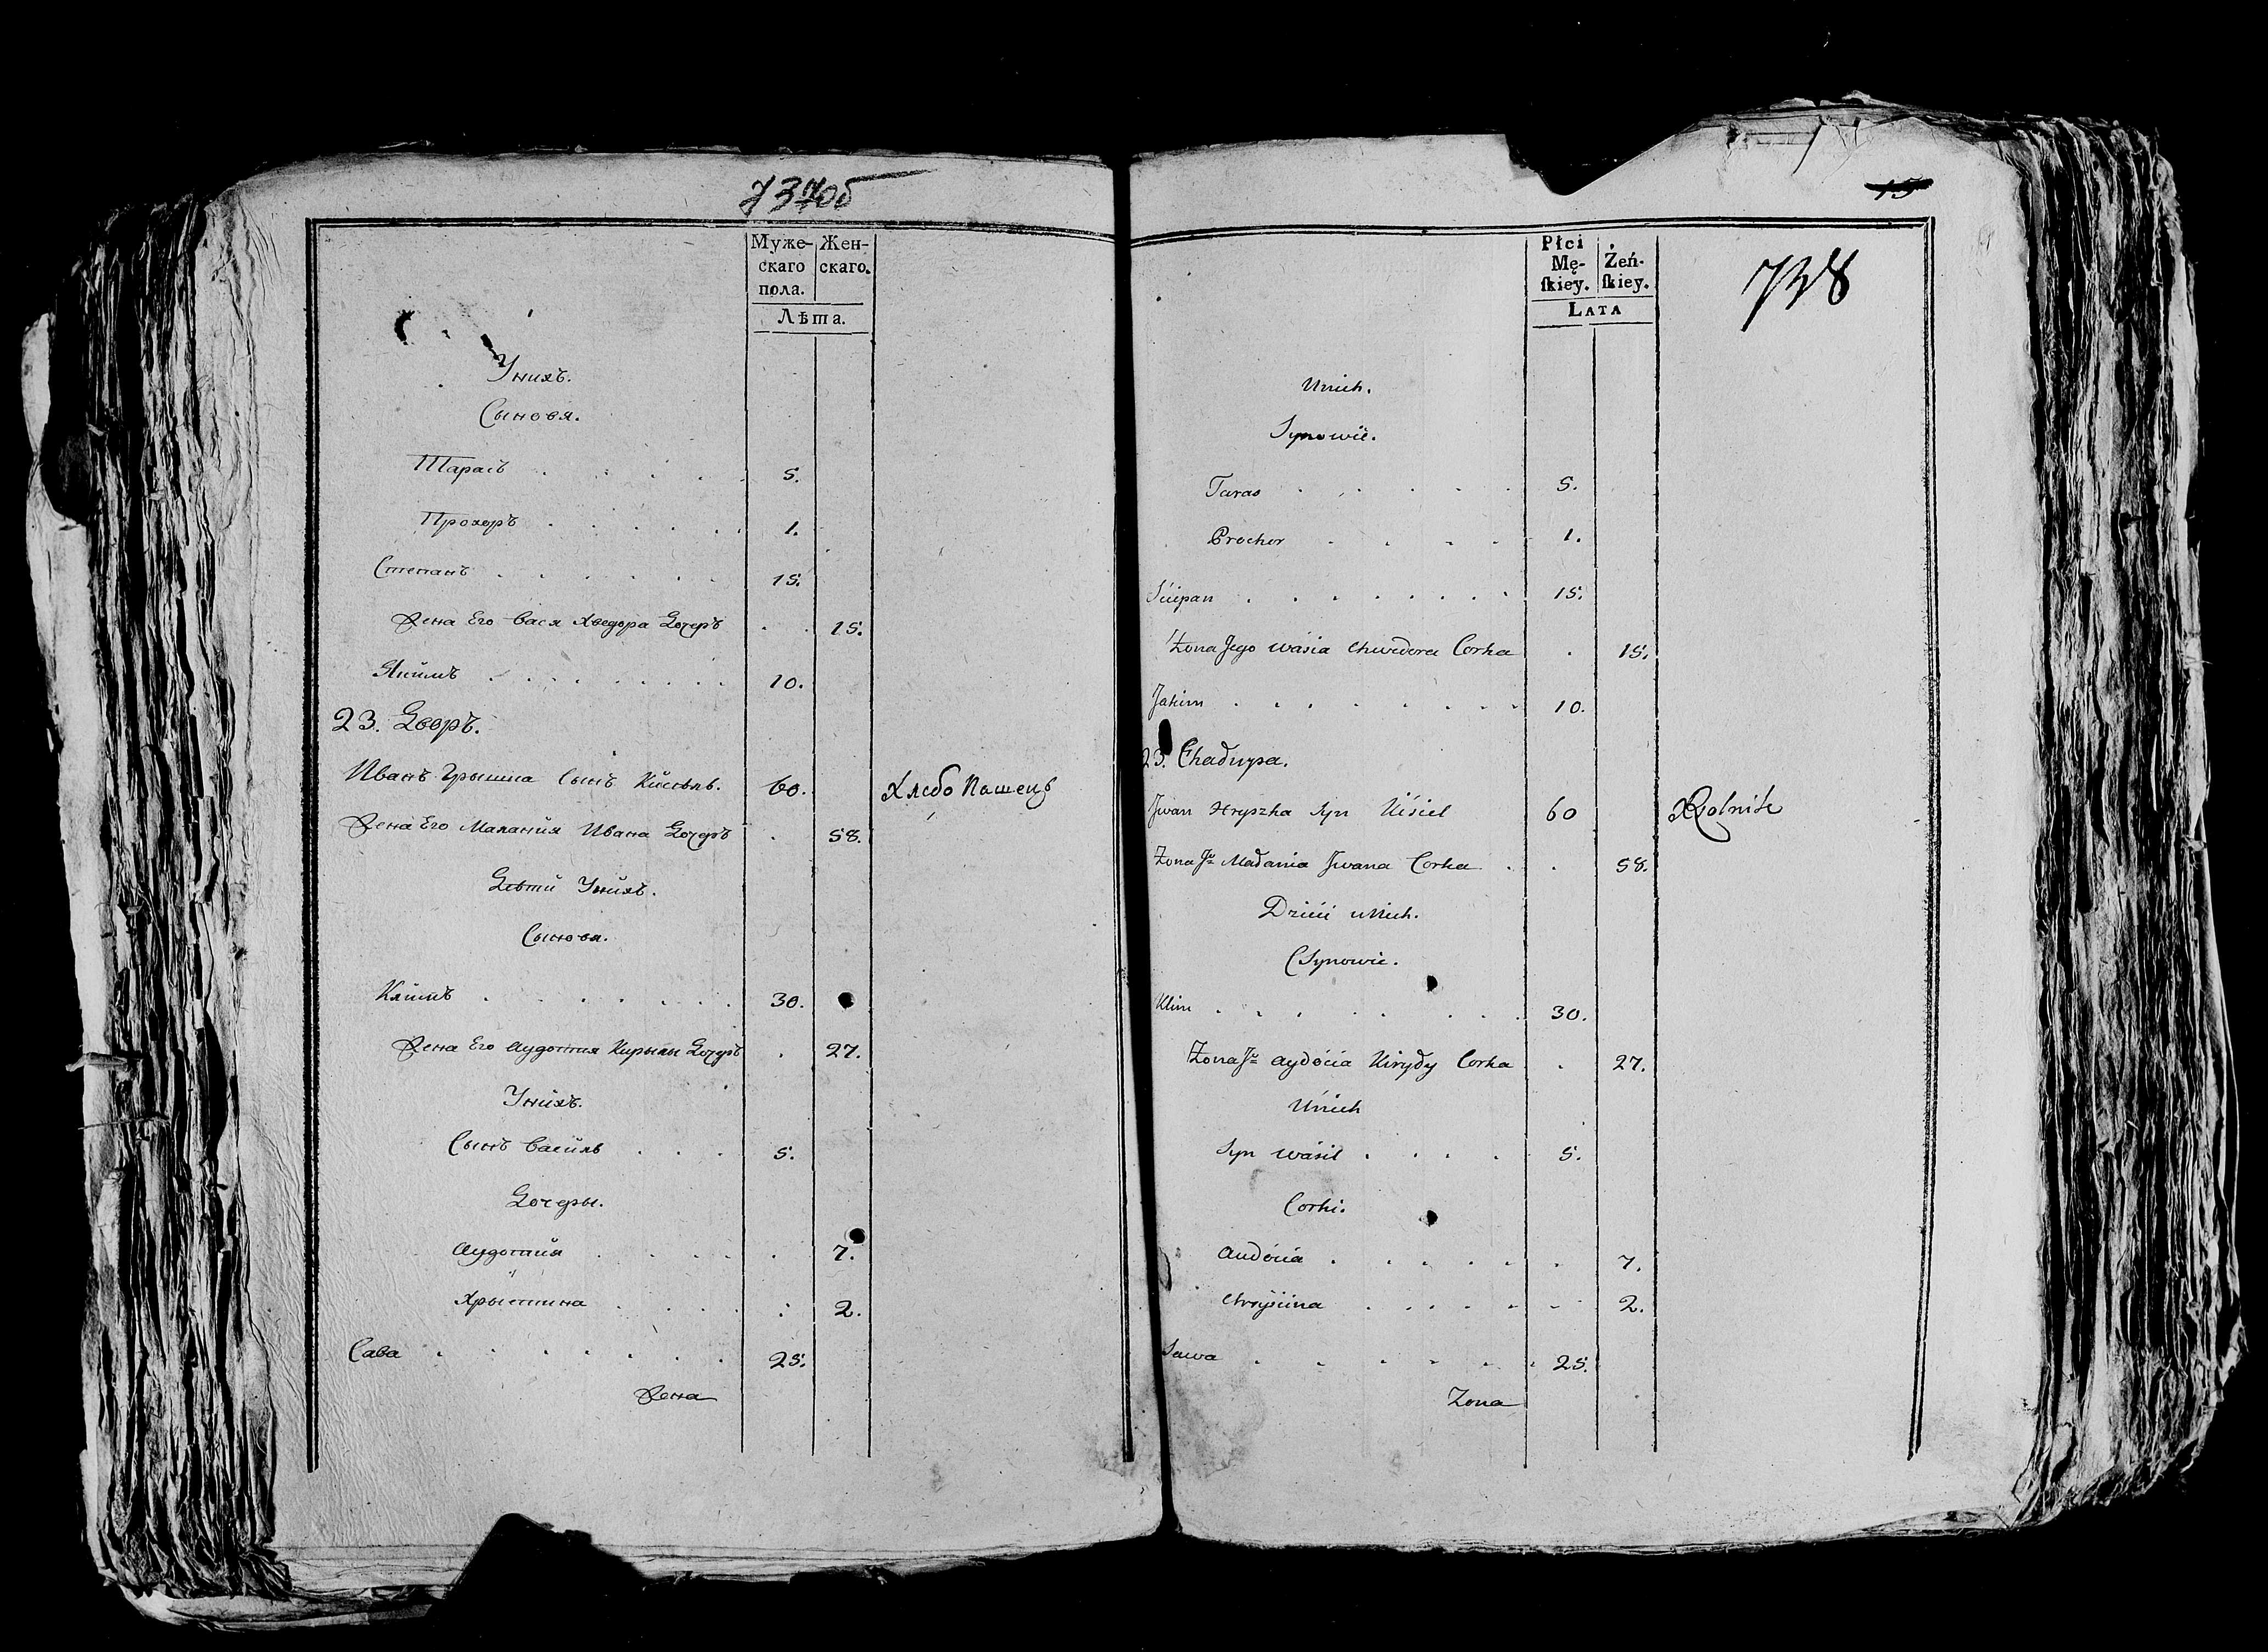 737об
Муже-
скаго
пола.
Жен-
скаго.
Лѣта.
Унихъ.
Сыновя.
Тарасъ 5.
Прохоръ 1.
Степанъ 15.
Жена Его Вася Хведора Дочеръ 15.
Якимъ 10.
23. Дворъ.
Иванъ Грышка Сынъ Кисѣль. 60. Хлебо Пашецъ
Жена Его Малания Ивана Дочеръ 58.
Дѣти Унихъ.
Сыновя.
Климъ 30.
Жена Его Аудотия Кирылы Дочеръ 27.
Унихъ.
Сынъ Василь 5.
Дочеры.
Аудотия 7.
Хрыстина 2.
Сава 25.
Жена
15
738
Płci
Mę-
ſkiey.
Żeń-
ſkiey.
LATA
Unich.
Synowie.
Taras 5.
Prochor 1.
Sciepan 15.
Żona Jego Wasia Chwedora Corka 15.
Jakim 10.
23. Chałupa.
Jwan Hryszka Syn Kisiel 60 Rolnik
Żona Jo Małania Jwana Corka 58.
Dzieci u Nich.
Synowie.
Klim 30.
Żona Jo Aydocia Kiryły Corka 27.
Unich
Syn Wasil 5.
Corki.
Audocia 7.
Chryscina 2.
Sawa 25.
Żona